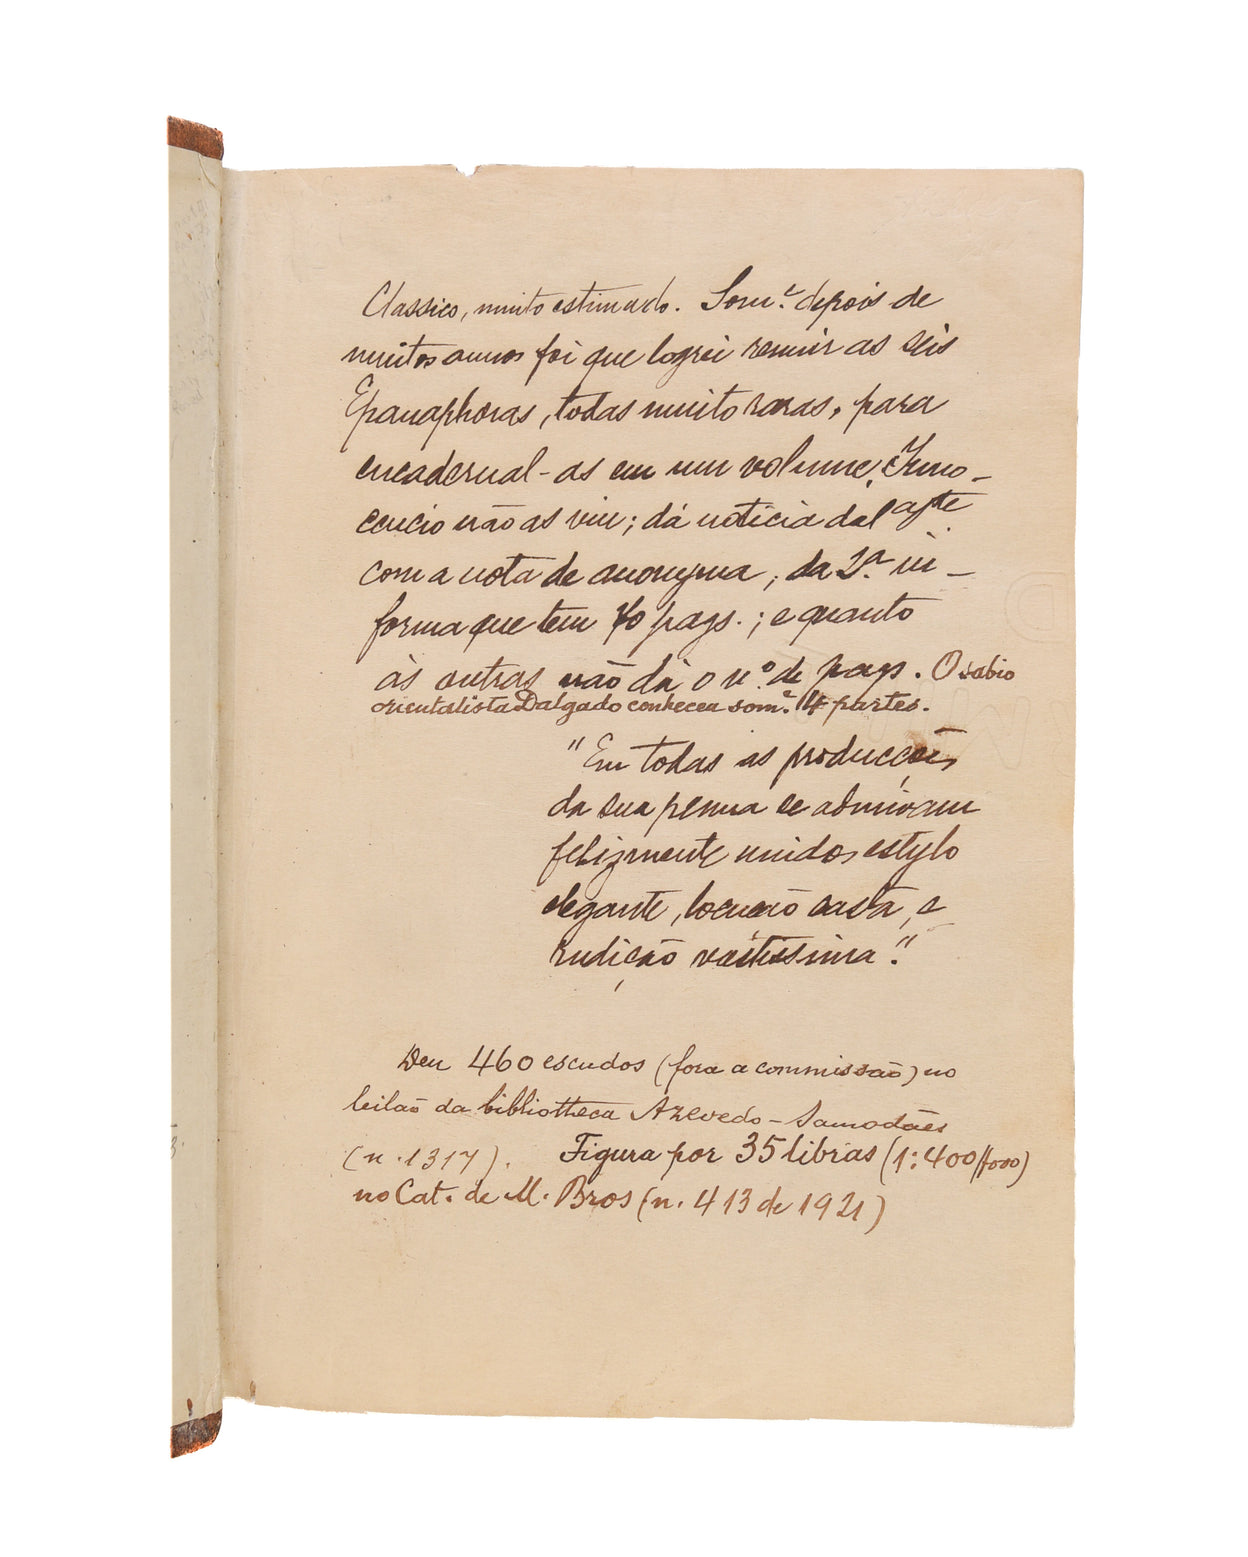 Classico, muito estimado. Som.e depois de
muitos annos foi que logrei reunir as seis
Epanaphoras, todas muito raras, para
encadernal-as em um volume. Inno-
cencio não as viu; dá noticia da 1.a pte
com a nota de anonyma, da 2.a in-
forma que tem 70 pags.; e quanto
ás outras não dá o n.o de pags. O sabio
orientalista Dalgado conheceu som.e 4 partes.
"Em todas as producções
da sua penna se admiram
felizmente unidos estylo
elegante, locução casta, e
rudição vastissima."
Deu 460 escudos (fora a commissão) no
leilão da bibliotheca Azevedo-Samodães
(n. 1317). Figura por 35 libras (1:400$000)
no Cat. de M. Bros (n. 413 de 1921)